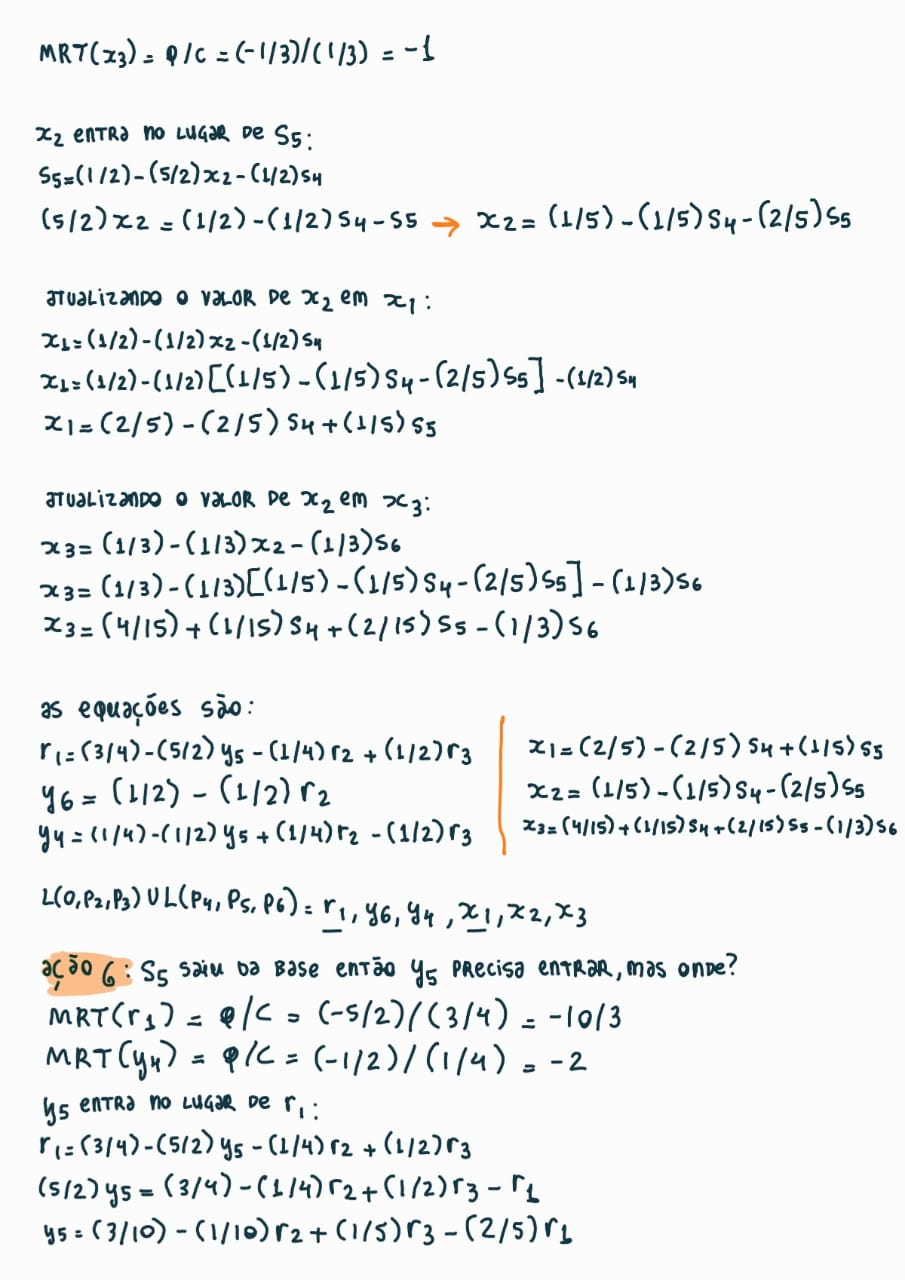 MRT(x3) = φ/c = (-1/3)/(1/3) = -1
x2 entra no lugar de S5:
S5=(1/2)-(5/2)x2-(1/2)S4
(5/2)x2 = (1/2)-(1/2)S4-S5 → x2= (1/5)-(1/5)S4-(2/5)S5
atualizando o valor de x2 em x1:
x1=(1/2)-(1/2)x2-(1/2)S4
x1=(1/2)-(1/2)[(1/5)-(1/5)S4-(2/5)S5]-(1/2)S4
x1=(2/5)-(2/5)S4+(1/5)S5
atualizando o valor de x2 em x3:
x3=(1/3)-(1/3)x2-(1/3)S6
x3=(1/3)-(1/3)[(1/5)-(1/5)S4-(2/5)S5]-(1/3)S6
x3=(4/15)+(1/15)S4+(2/15)S5-(1/3)S6
as equações são:
r1=(3/4)-(5/2)y5-(1/4)r2+(1/2)r3
y6=(1/2)-(1/2)r2
y4=(1/4)-(1/2)y5+(1/4)r2-(1/2)r3
x1=(2/5)-(2/5)S4+(1/5)S5
x2=(1/5)-(1/5)S4-(2/5)S5
x3=(4/15)+(1/15)S4+(2/15)S5-(1/3)S6
L(0,P2,P3)UL(P4,P5,P6)=r1,y6,y4,x1,x2,x3
ação 6: S5 saiu da base então y5 precisa entrar, mas onde?
MRT(r1) = φ/c = (-5/2)/(3/4) = -10/3
MRT(y4) = φ/c = (-1/2)/(1/4) = -2
y5 entra no lugar de r1:
r1=(3/4)-(5/2)y5-(1/4)r2+(1/2)r3
(5/2)y5=(3/4)-(1/4)r2+(1/2)r3-r1
y5=(3/10)-(1/10)r2+(1/5)r3-(2/5)r1